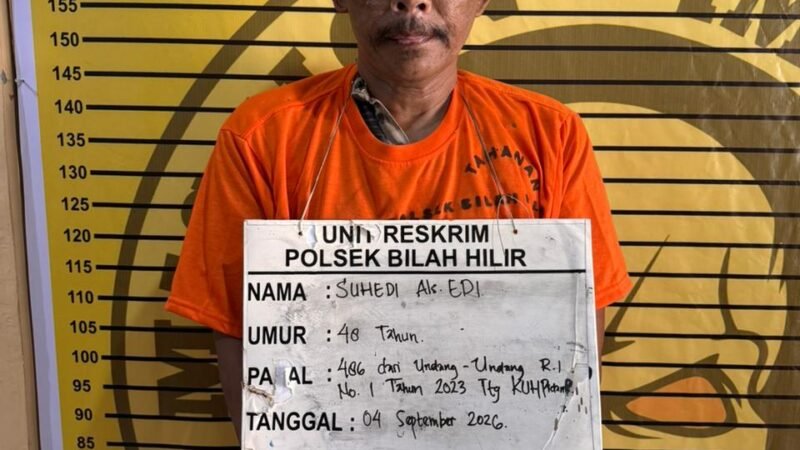 155
150
145
140
135
130
125
120
115
110
105
100
95
90
85
TAHANAN
POLSEK BILAH
UNIT RESKRIM
POLSEK BILAH HILIR
NAMA : SUHEDI Als. EDI
UMUR : 48 Tahun.
PASAL : 486 dari Undang-Undang R.I
No. 1 Tahun 2023 Ttg KUHPidana R.I
TANGGAL : 04 September 2026.